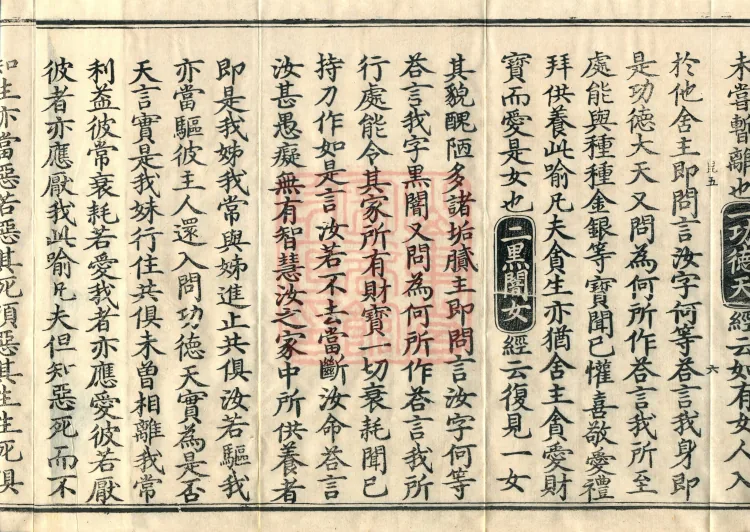 未嘗暫離也一功德天經云如有女人入
於他舍主即問言汝字何等荅言我身即
是功德大天又問為何所作荅言我所至
處能與種種金銀等寶聞已懽喜敬愛禮
拜供養此喻凡夫貪生亦猶舍主貪愛財
寶而愛是女也二黑闇女經云復見一女
其貌醜陋多諸垢膩主即問言汝字何等
荅言我字黑闇又問為何所作荅言我所
行處能令其家所有財寶一切衰耗聞已
持刀作如是言汝若不去當斷汝命荅言
汝甚愚癡無有智慧汝之家中所供養者
即是我姊我常與姊進止共俱汝若驅我
亦當驅彼主人還入問功德天實為是否
天言實是我妹行住共俱未曾相離我常
利益彼常衰耗若愛我者亦應愛彼若厭
彼者亦應厭我此喻凡夫但知惡死而不
知生亦當惡若惡其死須惡其生生死俱
昆五
六